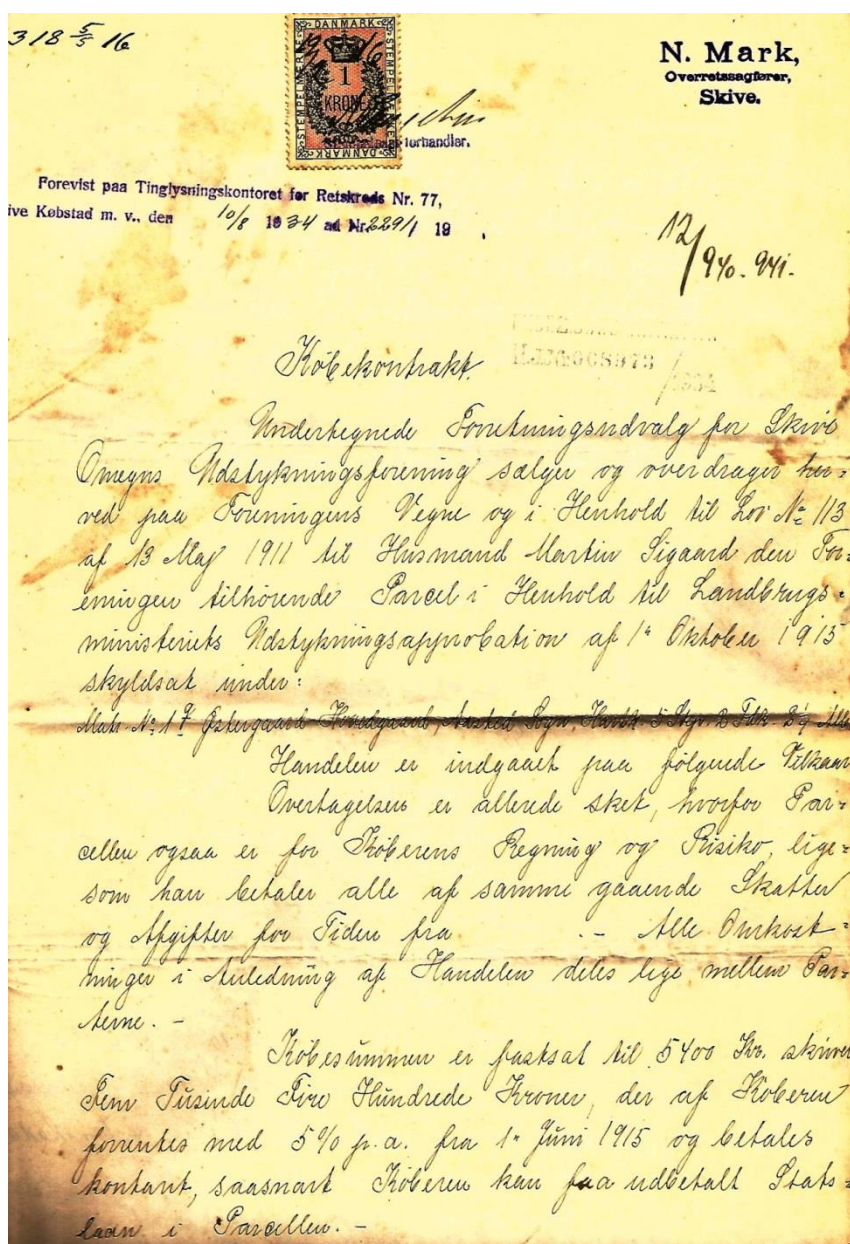 318 5/5 16
DANMARK
STEMPELMÆRKE
1
KRONE
DANMARK
N. Mark,
Overretssagfører,
Skive.
forhandler.
Forevist paa Tinglysningskontoret for Retskreds Nr. 77,
ive Købstad m. v., den 10/8 1934 ad Nr. 2291/ 19 .
12/940-941.
Købekontrakt.
Undertegnede Forretningsudvalg for Skive
Omegns Udstykningsforening sælger og overdrager her=
ved paa Foreningens Vegne og i Henhold til Lov No 113
af 13 Maj 1911 til Husmand Martin Sigaard den For=
eningen tilhørende Parcel i Henhold til Landbrugs=
ministeriets Udstykningsapprobation af 1' Oktober 1915
skyldsat under:
Matr. No 1 Østergaard Hovedgaard, Sogn, Hartk. 5 Skp. 2 Fdk. 2¼ Alb
Handelen er indgaaet paa følgende Vilkaar
Overtagelsen er allerede sket, hvorfor Par=
cellen ogsaa er for Køberens Regning og Risiko, lige=
som han betaler alle af samme gaaende Skatter
og Afgifter for Tiden fra .- Alle Omkost=
ninger i Anledning af Handelen deles lige mellem Par=
terne. -
Købesummen er fastsat til 5400 Kr. skriver
Fem Tusinde Fire Hundrede Kroner, der af Køberen
forrentes med 5% p.a. fra 1' Juni 1915 og betales
kontant, saasnart Køberen kan faa udbetalt Stats=
laan i Parcellen. -